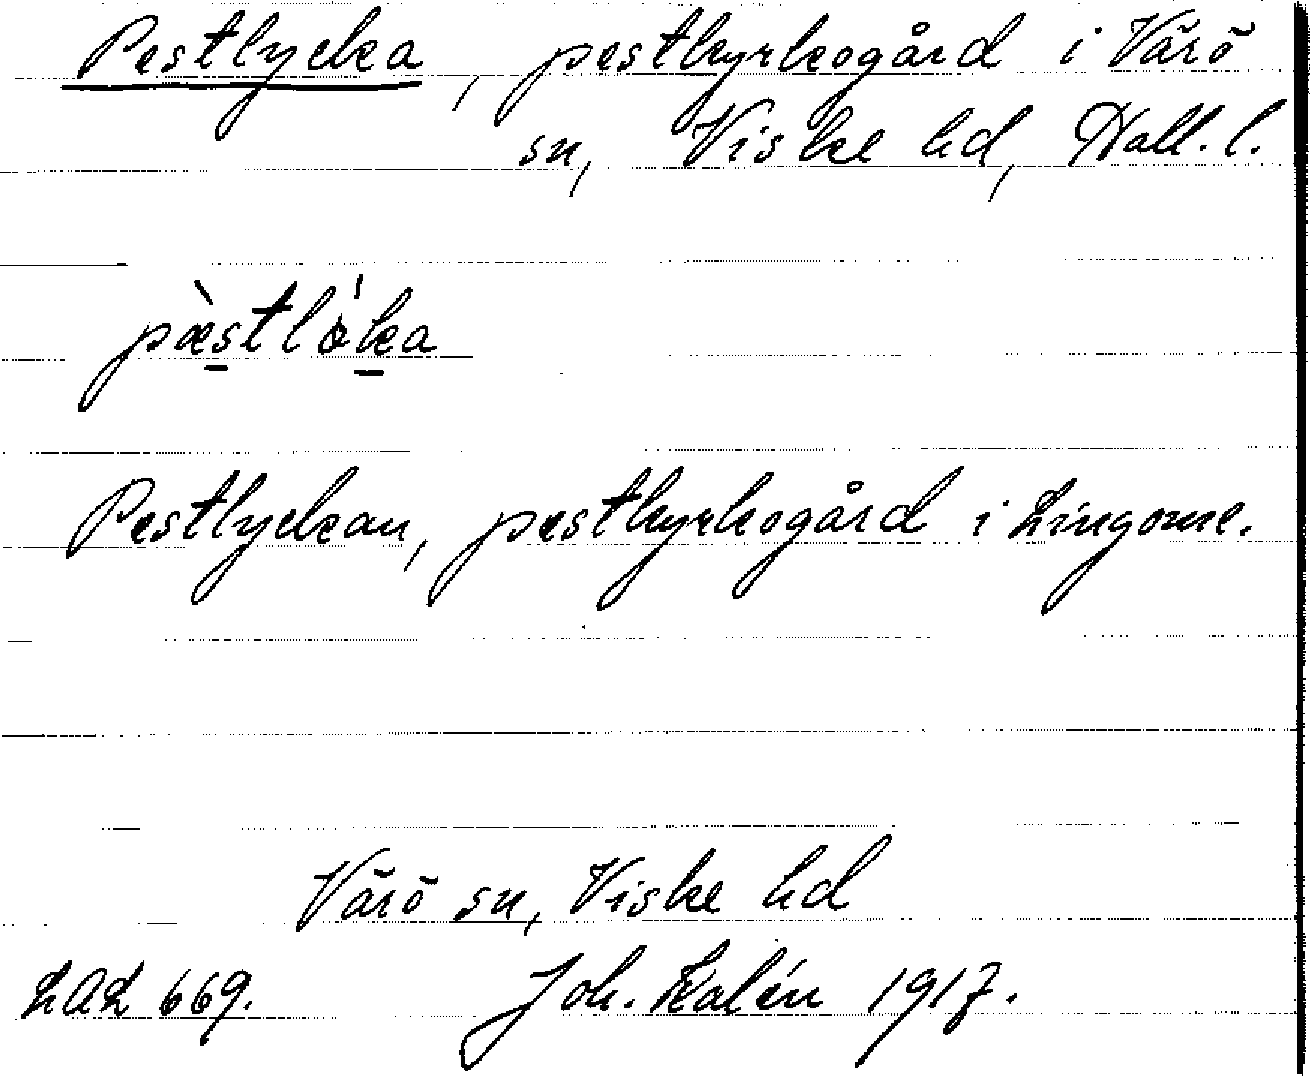 Pestlycka, pestkyrkogård i Värö
sn, Viske hd, Hall. l.
pæ̀stlö́ka
Pestlyckan, pestkyrkogård i Lingome.
Värö sn, Viske hd
LAL 669. Joh. Kalén 1917.